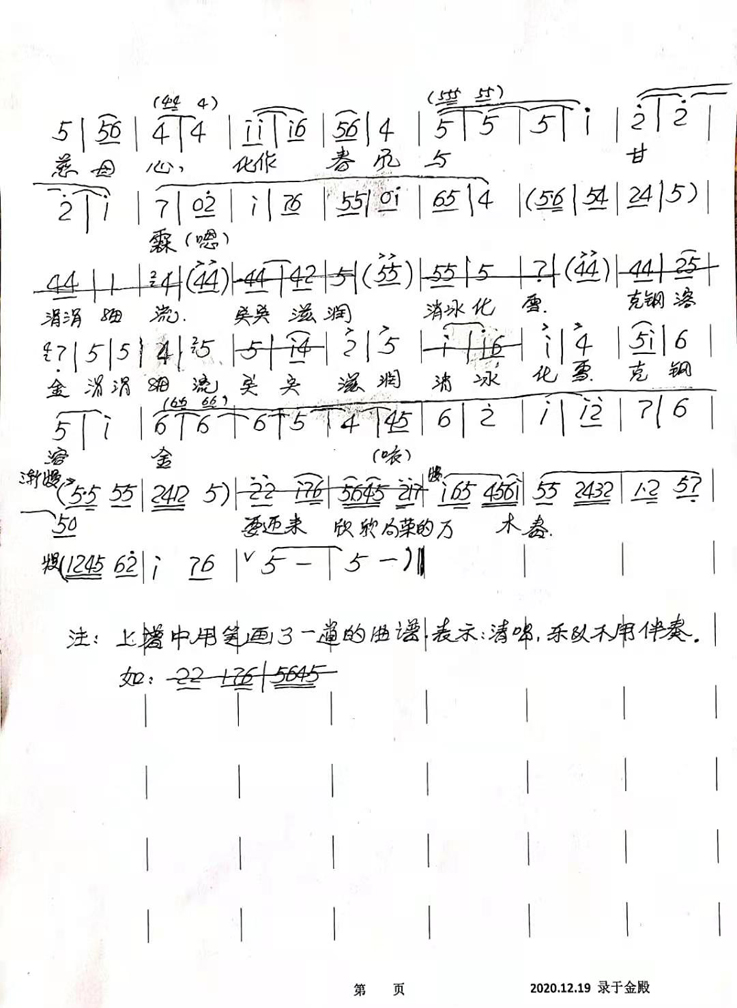 (44 4) (555 55)
5 | 56 | 4 | 4 | i i | i6 | 56 | 4 | 5 | 5 | 5 | i | 2̇ | 2̇ |
慈母 心， 化作 春风 与 甘
2̇ | i | 7 | 02̇ | i | 76 | 55 | 0i | 65 | 4 | (56 | 54 | 24 | 5) |
霖(嗯)
44 | 1 | 4 | (44) | 44 | 42 | 5 | (55) | 55 | 5 | 7 | (44) | 44 | 25 |
涓涓 细 流. 关关 滋 润 消冰 化 雪. 克钢 溶
7 | 5 | 5 | 4 | 5 | 5 | i4 | 2̇ | 5 | i | i6 | i | 4 | 5i | 6 |
金 涓 涓 细 流 关 关 滋 润 消 冰 化 雪. 克 钢
(65 66)
5 | i | 6 | 6 | 6 | 5 | 4 | 45 | 6 | 2̇ | i | i2̇ | 7 | 6 |
溶 金 (咳)
渐慢 (5·5 55 | 2412 5) | 2̇2̇ i76 | 5645 217 | i65 456i | 55 2432 | 1·2 57 |
50 要迎来 欣欣向荣的万 木春.
慢(1245 62̇ | i 76 | ∨ 5 – | 5 – ) ‖
注：上谱中用笔画了一道的曲谱，表示：清唱，乐队不用伴奏。
如：22 176 | 5645
第 页 2020.12.19 录于金殿